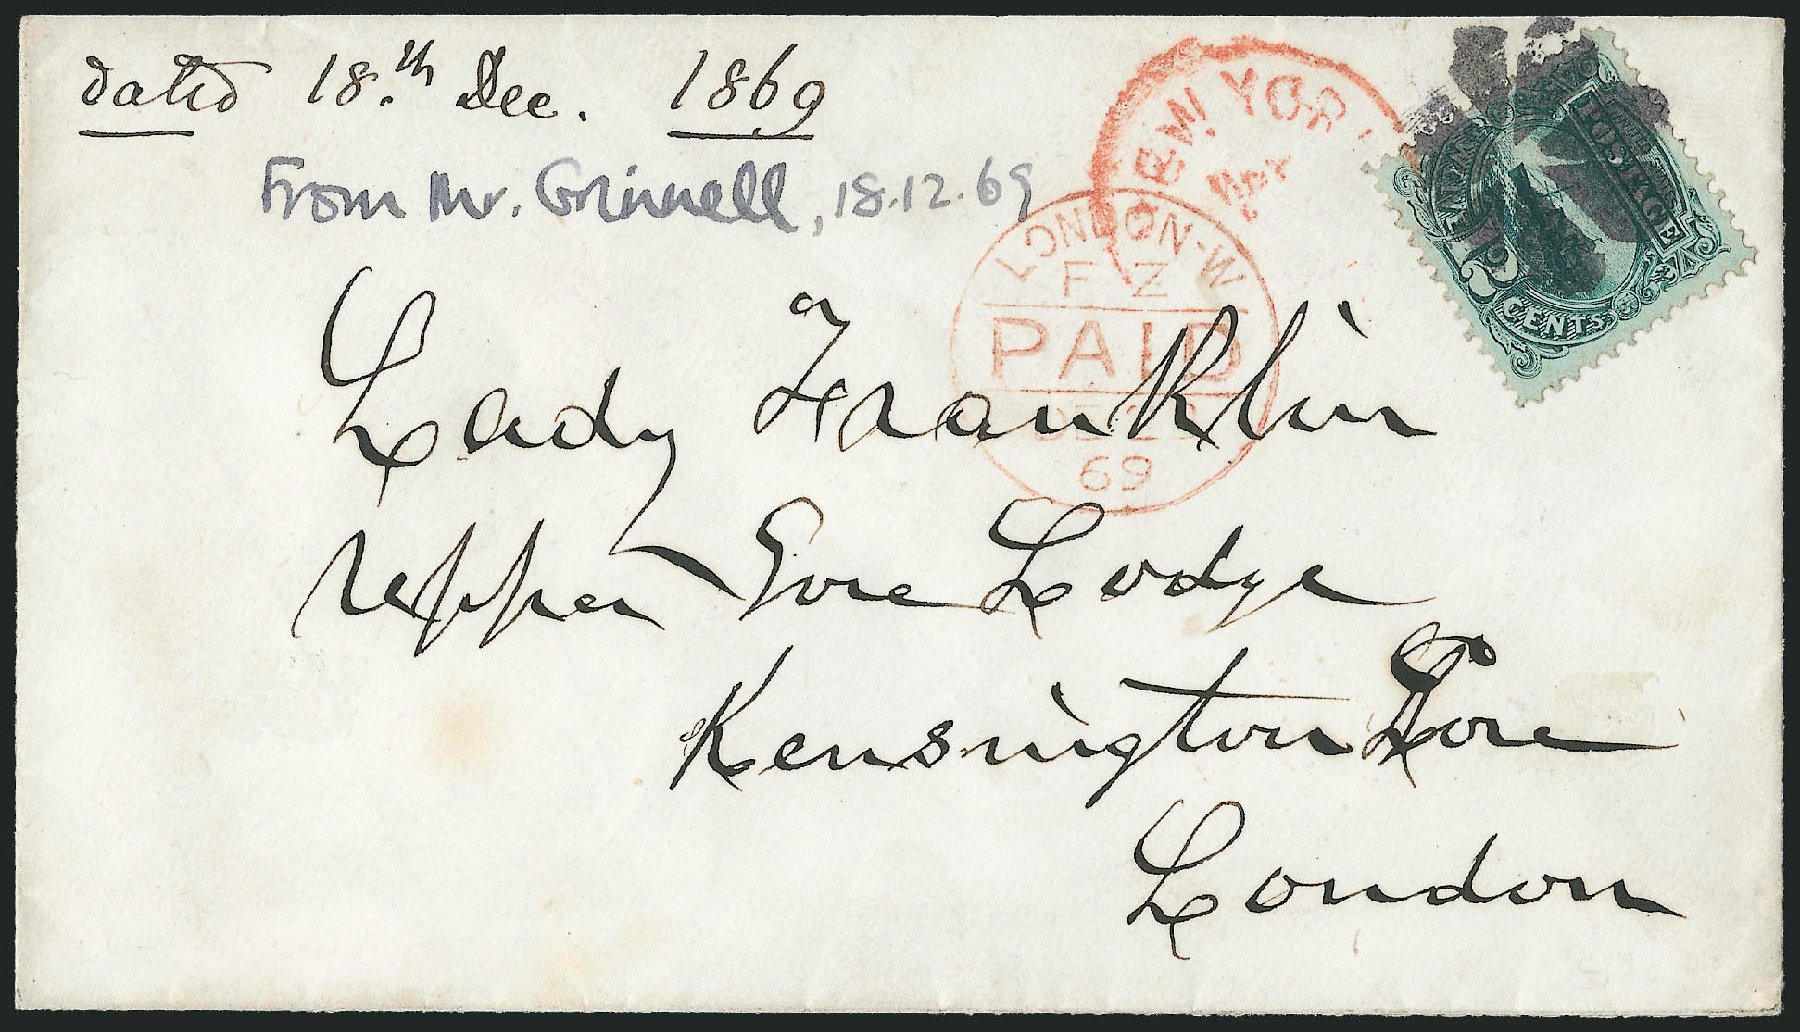 dated 18.th Dec. 1869
From Mr. Grinnell, 18.12.69
NEW YORK
LONDON-W
F Z
PAID
69
POSTAGE
12 CENTS
Lady Franklin
Upper Gore Lodge
Kensington Gore
London